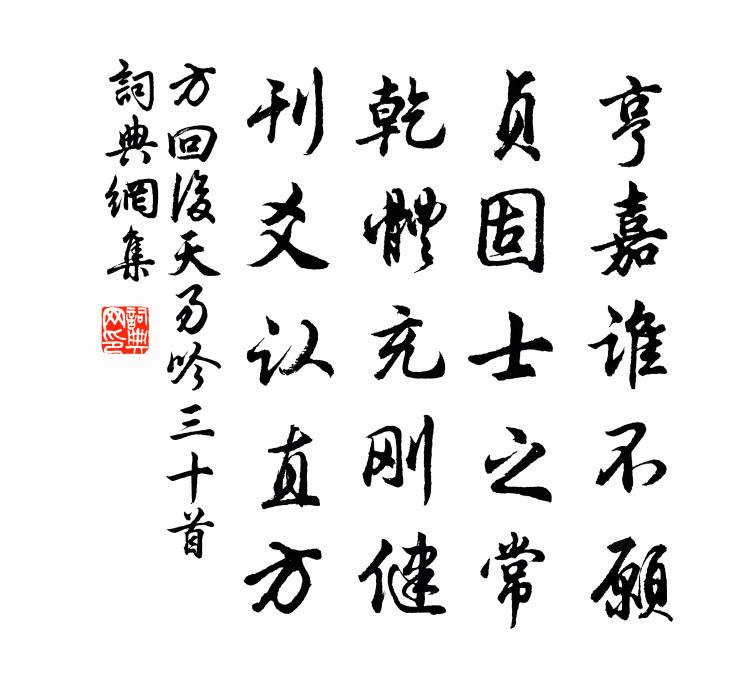 亨嘉谁不願
貞固士之常
乾體充刚健
刊爻认直方
方回後天易吟三十首
詞典網集
詞典网印